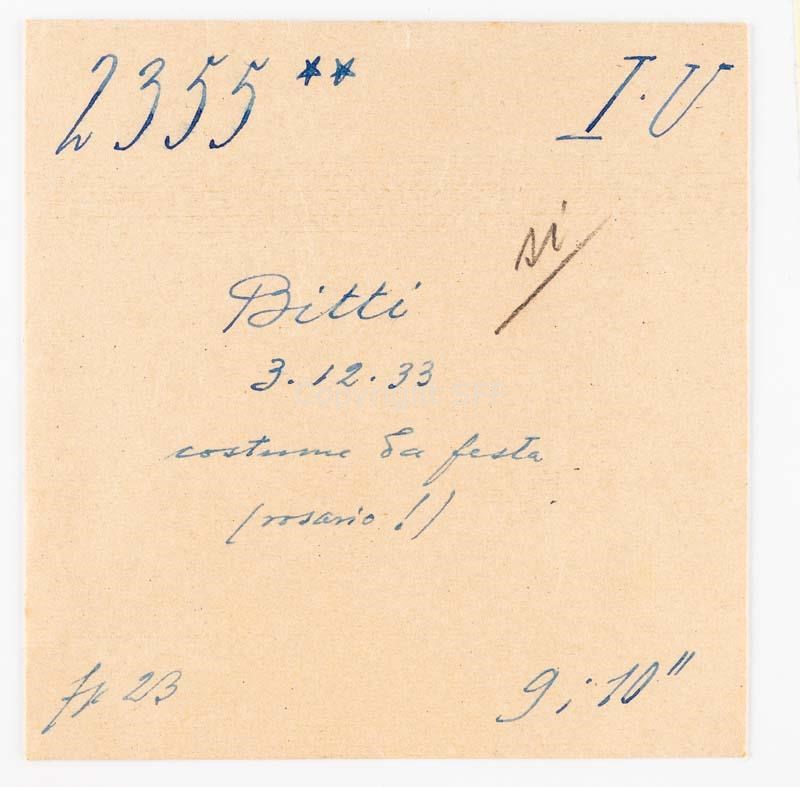 2355 ** I.U
si
Bitti
3.12.33
costume da festa
(rosario!)
23
9; 10"